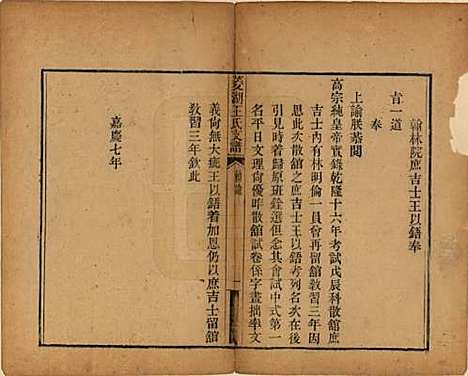 翰林院庶吉士王以鋙奉
旨一道
奉
上諭朕恭閱
高宗純皇帝實錄乾隆十六年考試戊辰科散館庶
吉士內有林明倫一員曾再留館教習三年因
思此次散館之庶吉士王以鋙考列名次在後
引見時着歸原班銓選但念其會試中式第一
名平日文理尚優昨散館試卷係字畫拙率文
菱湖王氏支譜
義尚無大疵王以鋙着加恩仍以庶吉士留館
教習三年欽此
嘉慶七年